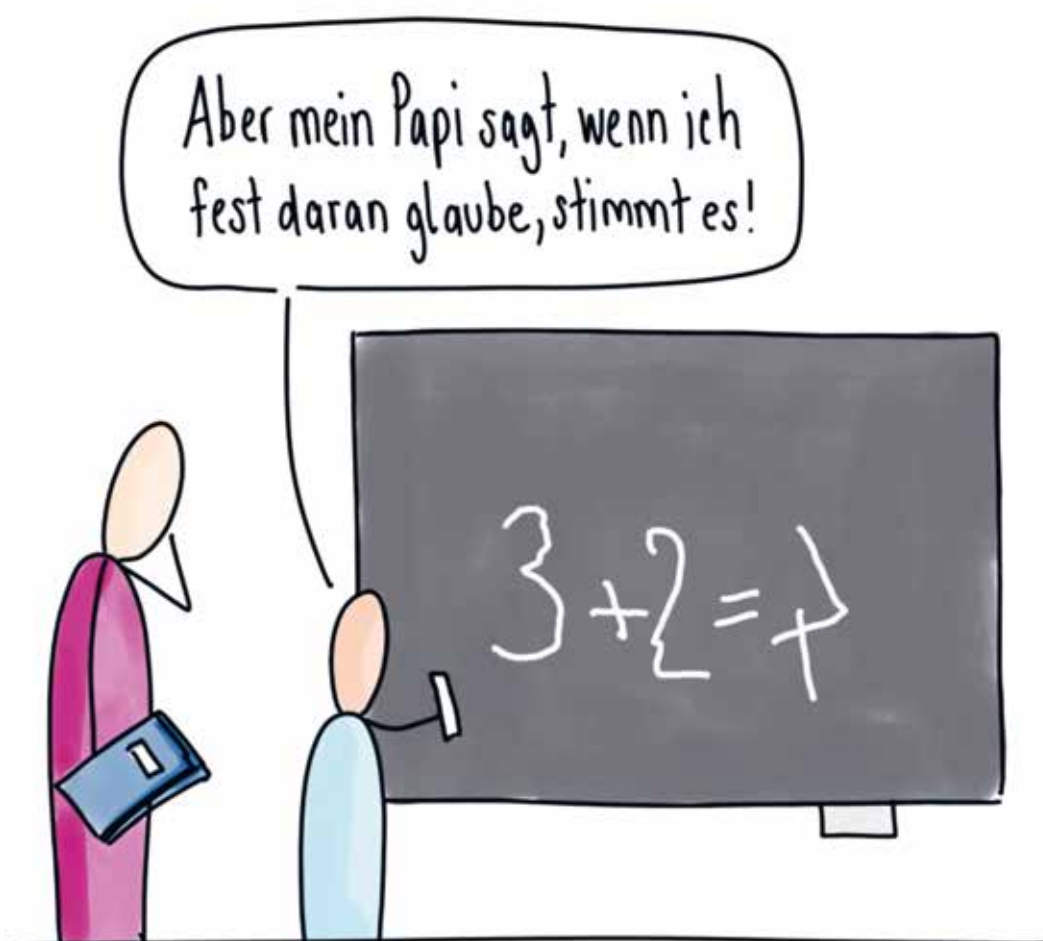 Aber mein Papi sagt, wenn ich
fest daran glaube, stimmt es!
3+2=4